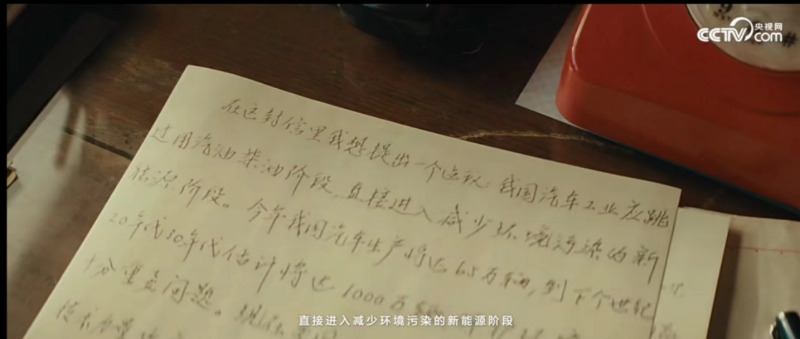 央视网
CCTV.com
在这封信里我想提出一个建议:我国汽车工业应跳
过用汽油柴油阶段,直接进入减少环境污染的新
能源阶段。今年我国汽车生产将达65万辆,到下个世纪
20年代30年代估计将达1000万
十分重要问题。现在
技术力量
直接进入减少环境污染的新能源阶段